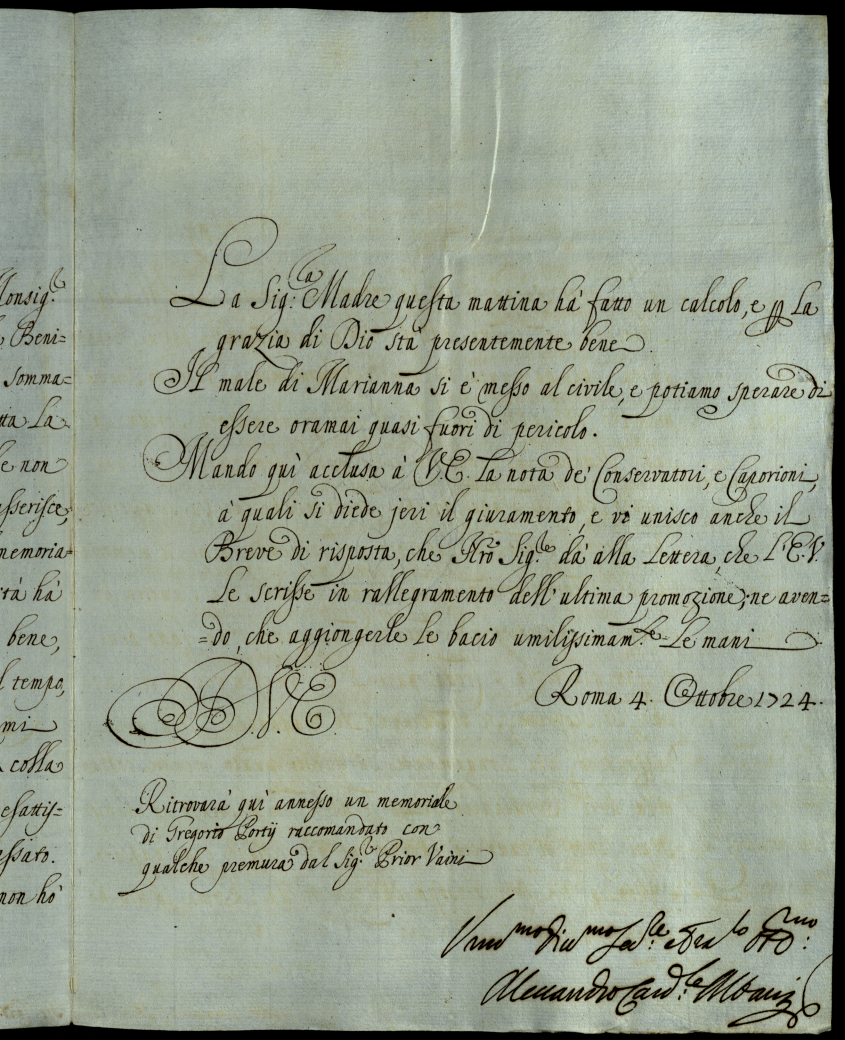 Monsig.r
Beni=
somma=
La
e non
asserisce,
memoria=
ha
bene,
l tempo,
mi
colla
esattis=
non hò
La Sig.ra Madre questa mattina hà fatto un calcolo, e p La
grazia di Dio stà presentemente bene.
Il male di Marianna si è messo al civile, e potiamo sperare di
essere oramai quasi fuori di pericolo.
Mando quì acclusa à V.E. La nota de' Conservatori, e Caporioni,
à quali si diede jeri il giuramento, e vi unisco anche il
Breve di risposta, che Nrõ Sig.re dà alla Lettera, che L'E.V.
Le scrisse in rallegramento dell'ultima promozione; ne aven=
=do, che aggiongerle le bacio umilissimam.te Le mani
D. V.E.
Roma 4. Ottobre 1724.
Ritrovarà quì annesso un memoriale
di Gregorio Portij raccomandato con
qualche premura dal Sig.r Prior Vaini
Alessandro Card.le Albani